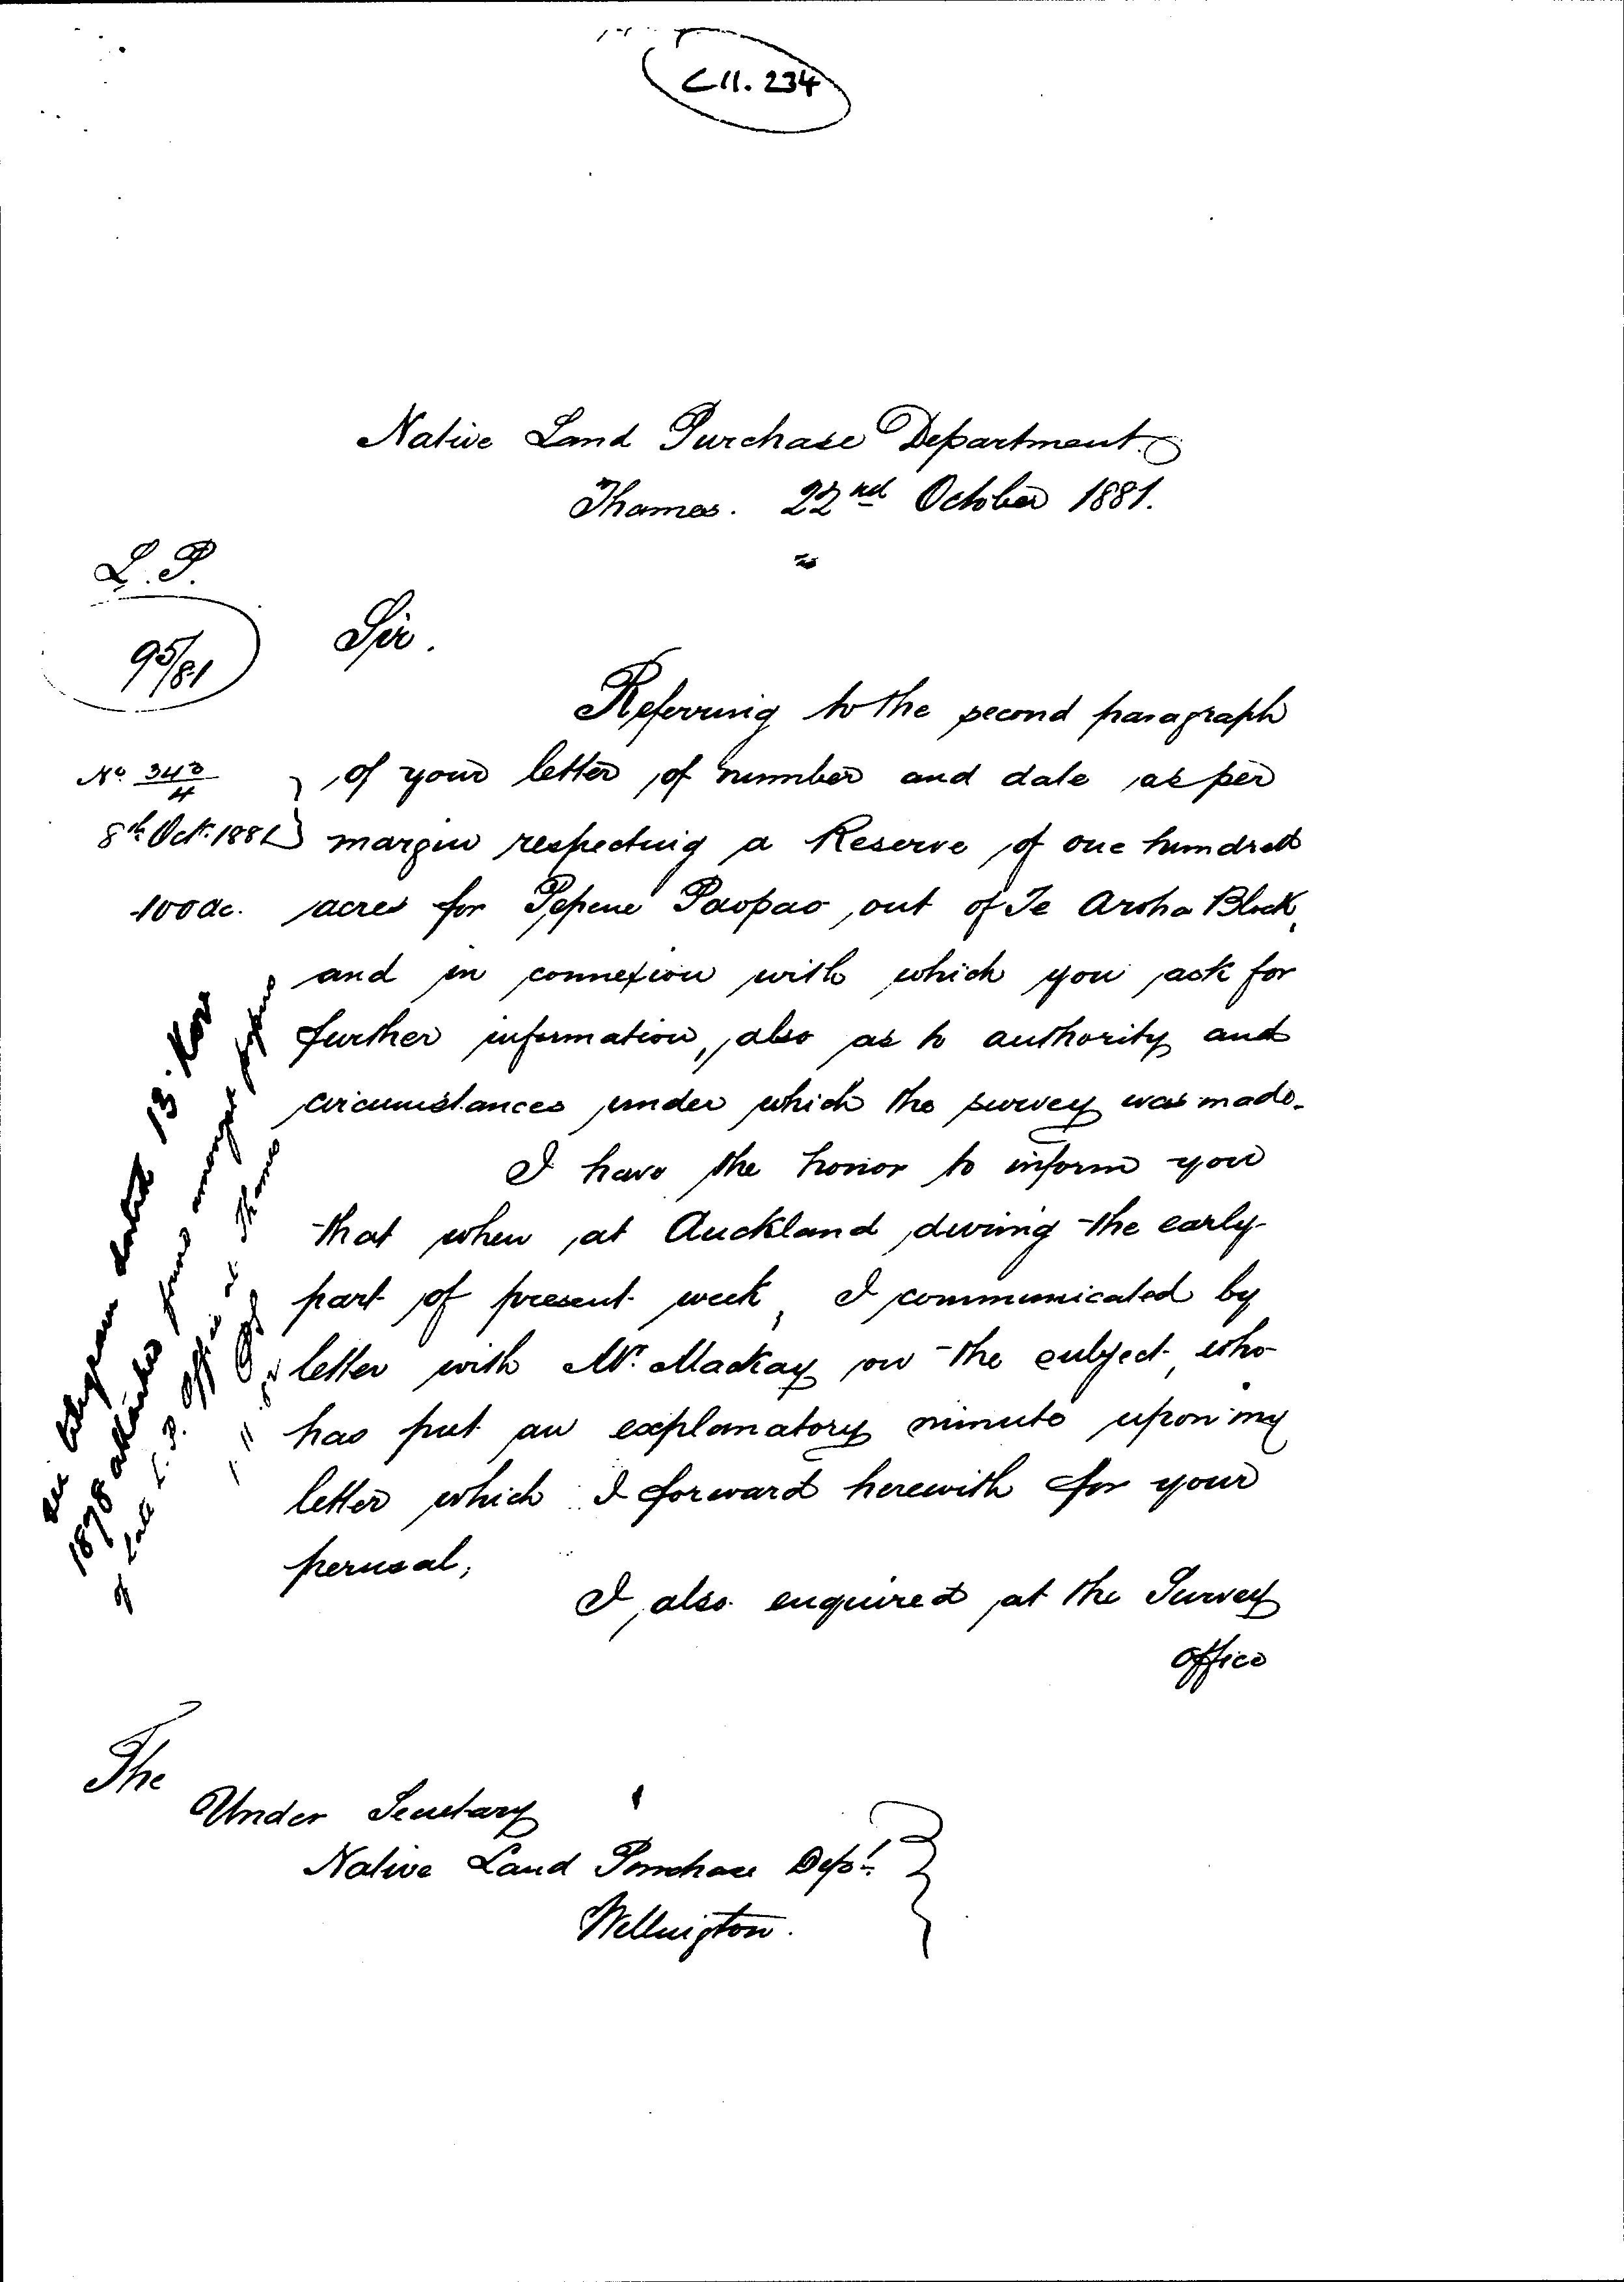 C11.234
Native Land Purchase Department
Thames. 22nd October 1881.
L.P.
95/81
Sir.
Referring to the second paragraph
No 343/4
of your letter of number and date as per
8th Oct. 1881
margin respecting a Reserve of one hundred
100 ac.
acres for Pepene Paopao out of Te Aroha Block,
and in connexion with which you ask for
further information, also as to authority and
circumstances under which the survey was made.
I have the honor to inform you
that when at Auckland during the early
part of present week, I communicated by
letter with Mr. Mackay on the subject, who
has put an explanatory minute upon my
letter which I forward herewith for your
perusal,
I also enquired at the Survey
office
See telegram dated 13. Nov
1878 attached found amongst papers
of late L.P. Office at Thames
1.11.82
The
Under Secretary
Native Land Purchase Dept.
Wellington.